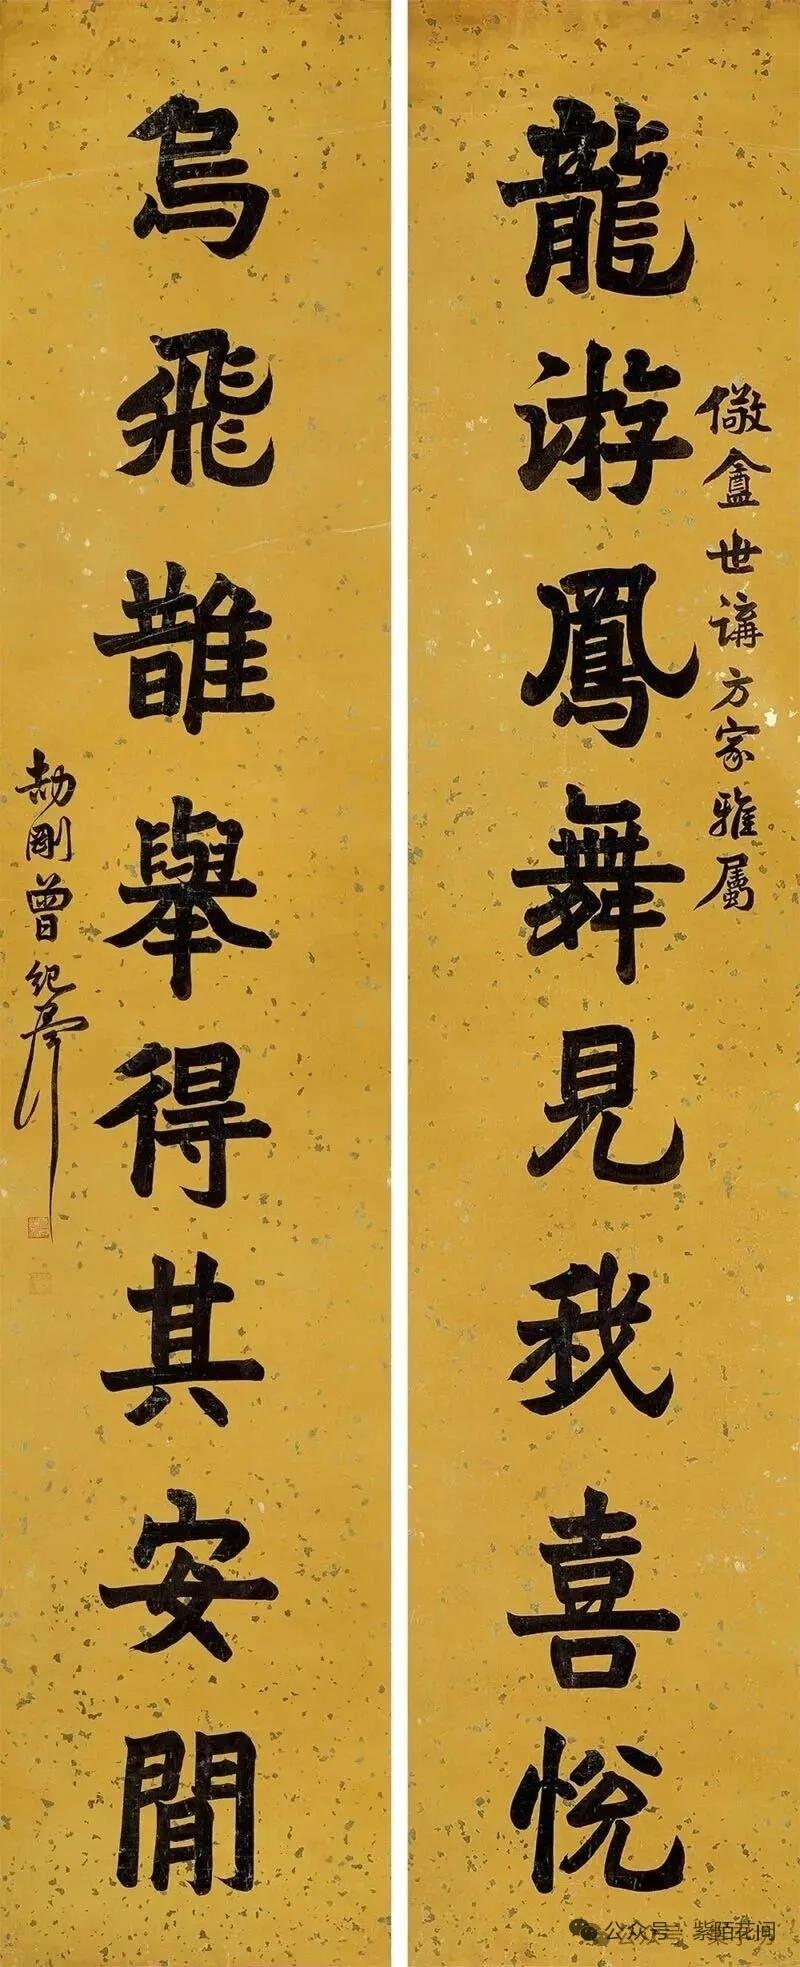 儆盦世講方家雅屬
龍游鳳舞見我喜悅
烏飛䧿舉得其安閒
劼剛曾紀澤
公众号 · 紫陌花间